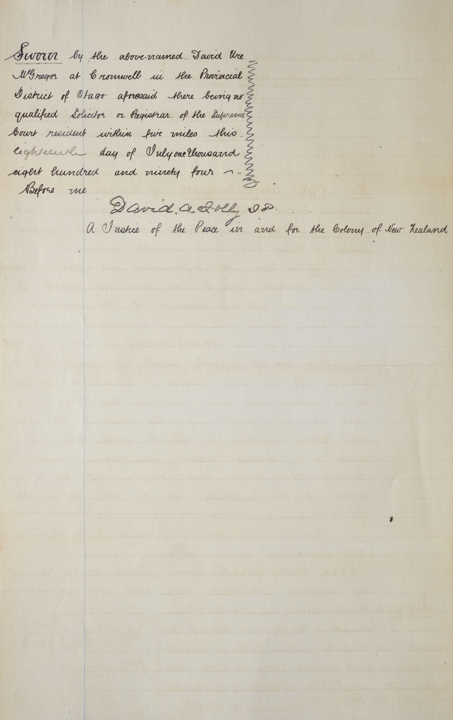 Sworn by the above-named David Ure
McGregor at Cromwell in the Provincial
District of Otago aforesaid there being no
qualified Solicitor or Registrar of the Supreme
Court resident within five miles this
eighteenth day of July one thousand
eight hundred and ninety four
Before me
David A Jolly J.P.
A Justice of the Peace in and for the Colony of New Zealand